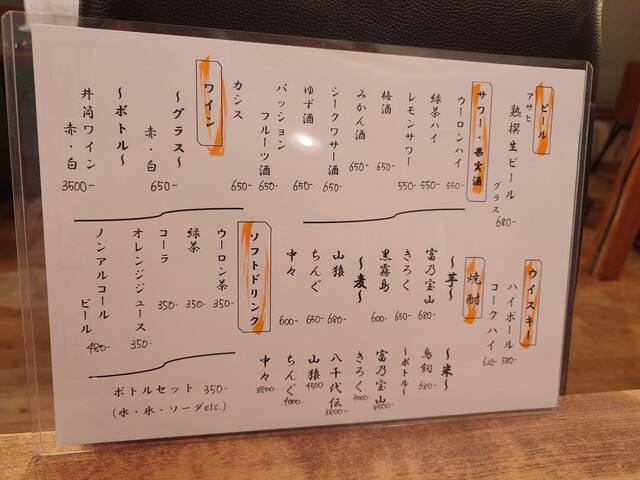 ビール
アサヒ
熟撰生ビール
グラス 680-
サワー・果実酒
ウーロンハイ 550-
緑茶ハイ 550-
レモンサワー 550-
梅酒 650-
みかん酒 650-
シークワサー酒 650-
ゆず酒 650-
パッション
フルーツ酒 650-
カシス 650-
ワイン
〜グラス〜
赤・白 650-
〜ボトル〜
井筒ワイン
赤・白 3500-
ウイスキー
ハイボール 580-
コークハイ 620-
焼酎
〜芋〜
富乃宝山 680-
きろく 650-
黒霧島 600-
〜麦〜
山猿 680-
ちんぐ 650-
中々 600-
〜米〜
鳥飼 680-
〜ボトル〜
富乃宝山 4500-
きろく 4000-
八千代伝 3800-
山猿 4500
ちんぐ 4000-
中々 3800-
ソフトドリンク
ウーロン茶 350-
緑茶 350-
コーラ 350-
オレンジジュース 350-
ノンアルコール
ビール 480-
ボトルセット 350-
(水・氷・ソーダetc.)